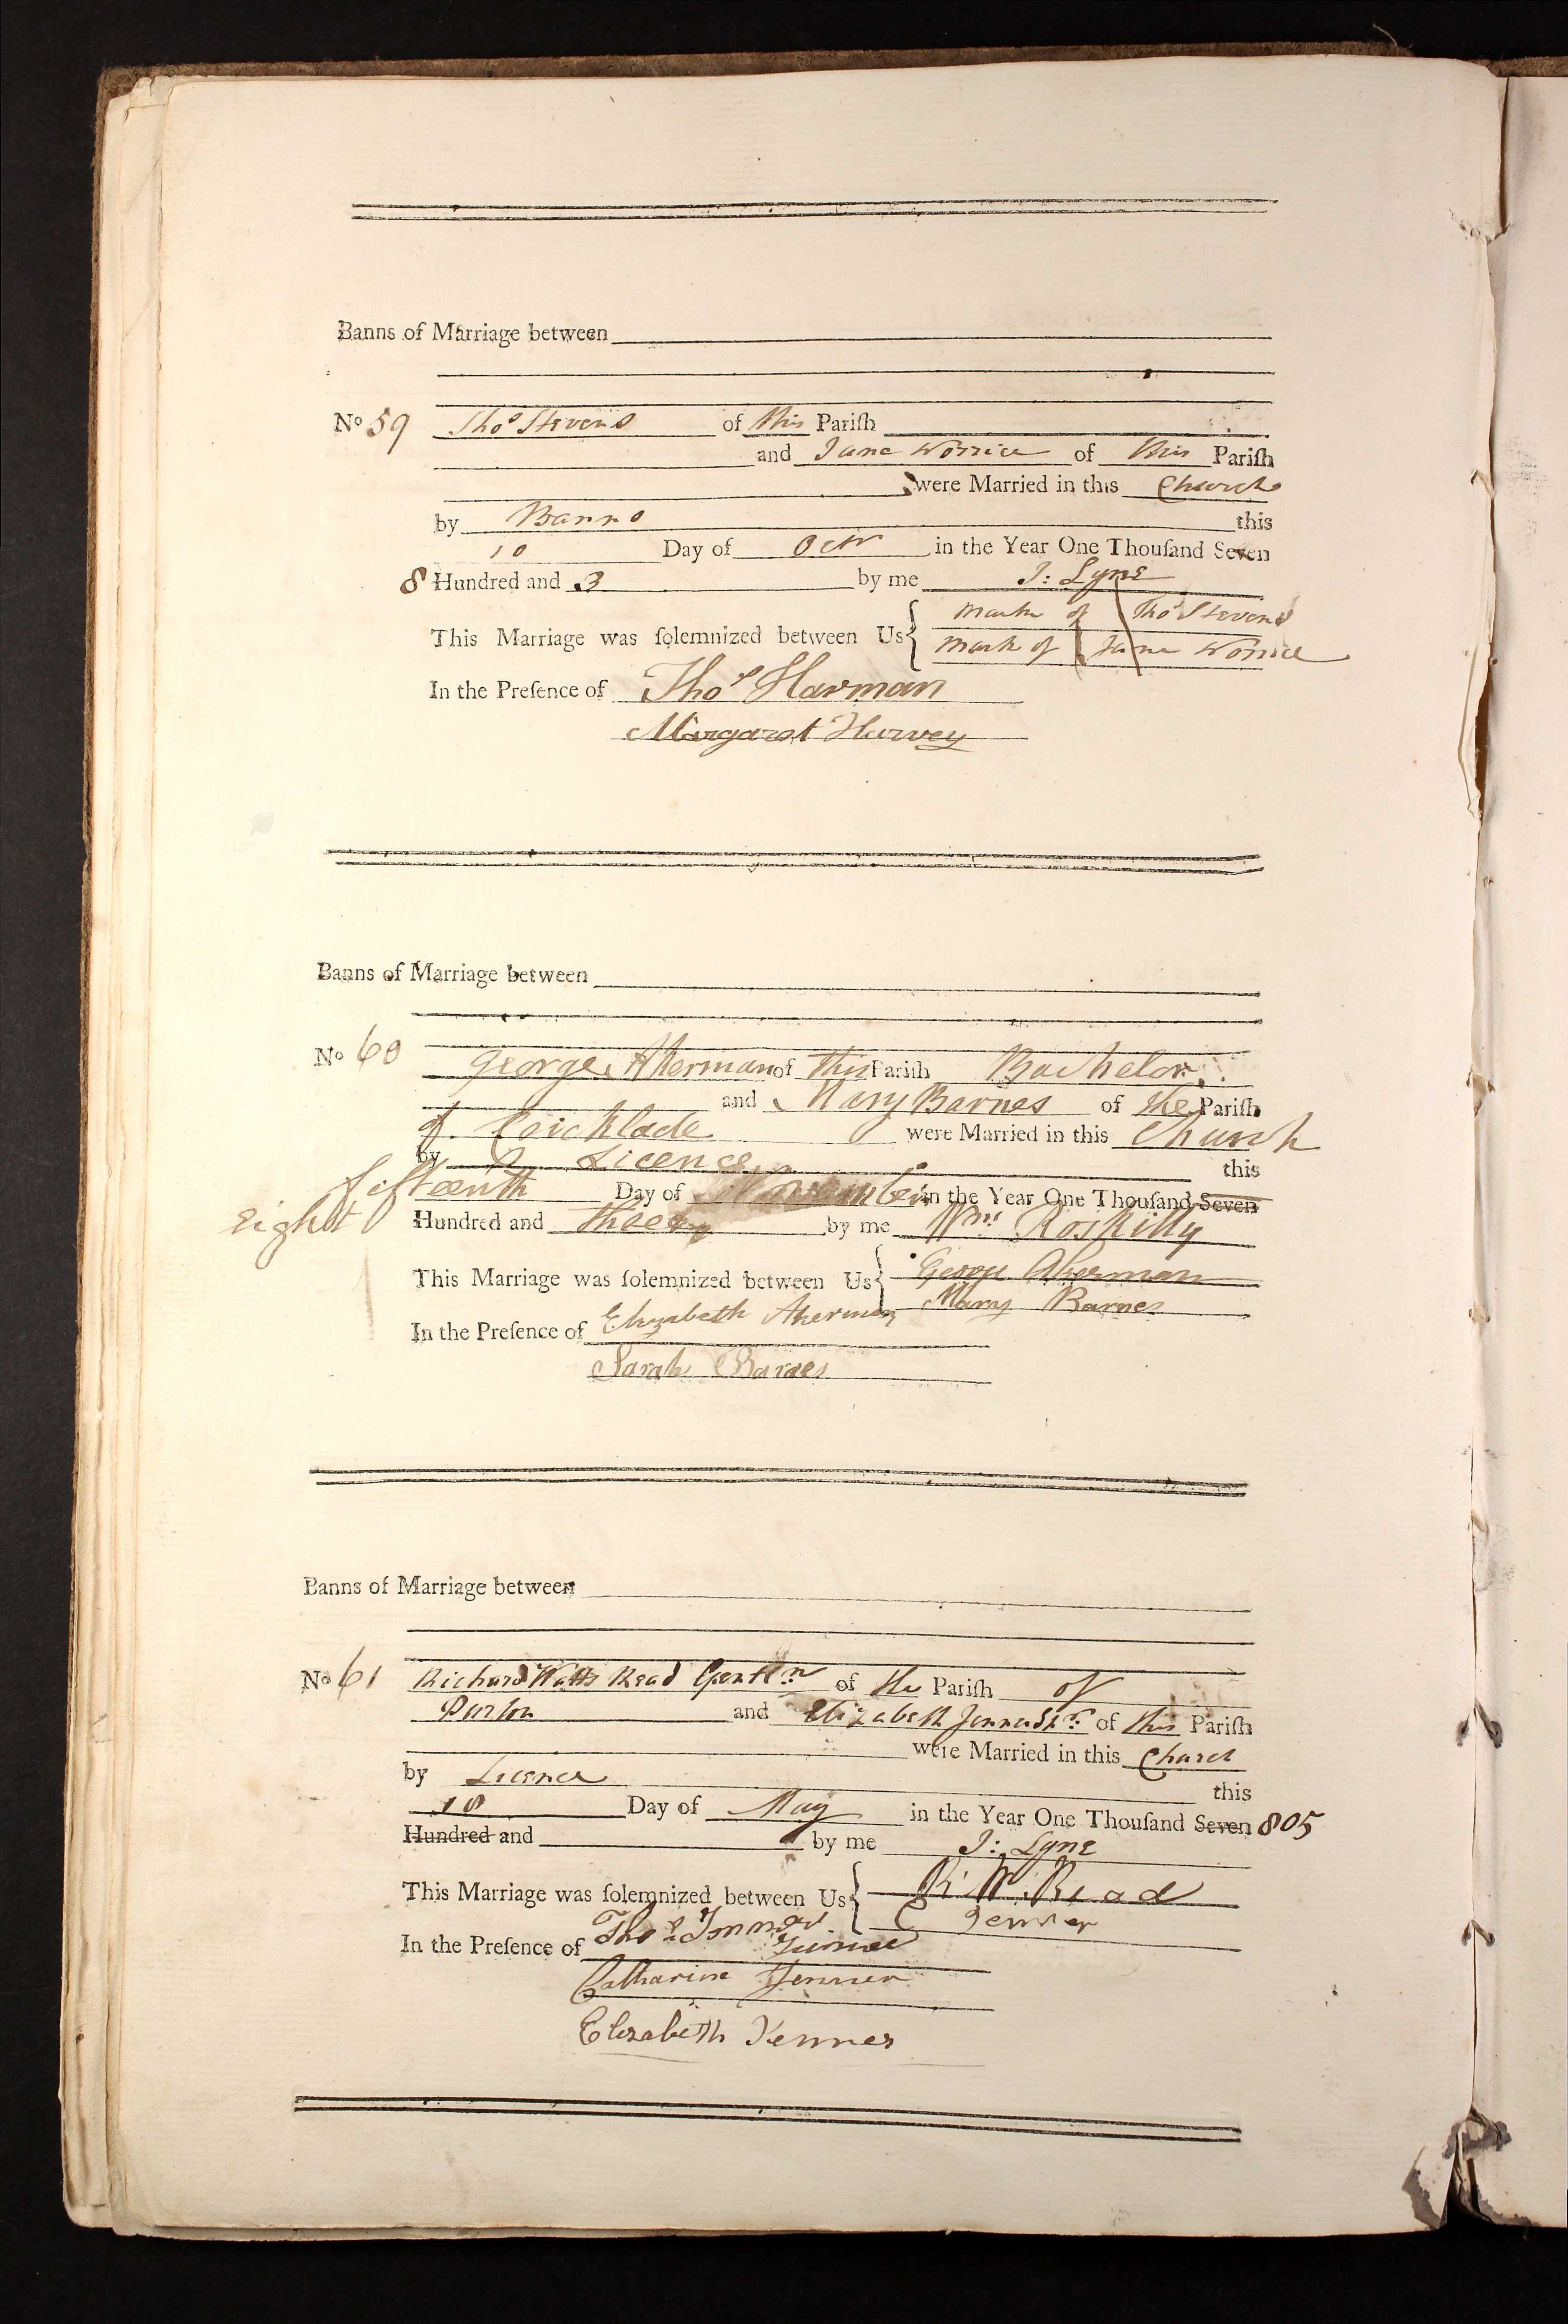 Banns of Marriage between
No 59 Thos Stevens of this Pariſh
and Jane Worrice of this Pariſh
were Married in this Church
by Banns this
10 Day of Octr in the Year One Thouſand Seven
8 Hundred and 3 by me J: Lyne
This Marriage was ſolemnized between Us { mark of Thos Stevens
mark of Jane Worrice
In the Preſence of Thos Harman
Margaret Harvey
Banns of Marriage between
No 60 George Akerman of this Pariſh Bachelor
and Mary Barnes of the Pariſh
of Cricklade were Married in this Church
by Licence this
fifteenth Day of November in the Year One Thouſand Seven
Eight Hundred and three by me Wm Roskilly
This Marriage was ſolemnized between Us { George Akerman
Mary Barnes
In the Preſence of Elizabeth Akerman
Sarah Barnes
Banns of Marriage between
No 61 Richard Watts Read Gentln of the Pariſh of
Purton and Elizabeth Jenner Spr of this Pariſh
were Married in this Church
by Licence this
18 Day of May in the Year One Thouſand Seven 805
Hundred and by me J: Lyne
This Marriage was ſolemnized between Us { R. W. Read
E Jenner
In the Preſence of Thos Jenner
Junior
Catharine Jenner
Elizabeth Jenner